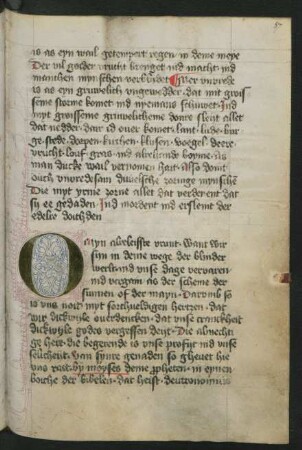 is as eyn wail getempert regen in deme meye
Der vil golder vrucht brenget ind macht ind
manchen mynschen verbliydet Wer vnvrede
is as eyn gruwelich vngewedder dat mit grois
seme storme komet ind nyemans schuwet Ind
myt groisseme gruwelicheme donre sleit allet
dat nedder dair id over komet lant lude bur
ge stede dorpen kirchen klusen voegel deere
vrucht louf gras ind alrekunde boyme as
man ducke wail vernomen hait also doint
ouch vnvredesam duvelsche zornige mynschen
Die myt yrme zorne allet dat verderent dat
sy ee gedaden Ind mordent ind ersleint der
edelre doichden
O mayn alreleifste vrunt want wir
syn in deme wege der blinder
werlt ind vnse dage vervaren
ind vergain as der scheme der
sunnen of der mayn Darumb so
is vns noit myt sorchveldigen hertzen dat
wir dickwile overdencken dat vnse cranckheit
dickwyle godes vergessen deit Die almechti
ge hett die begerende is vnse profyt ind vnse
selicheit van synre genaden so gheuet hie
vns rait by moyses deme propheten in eynen
boiche der bibelen dat heist deutronimius